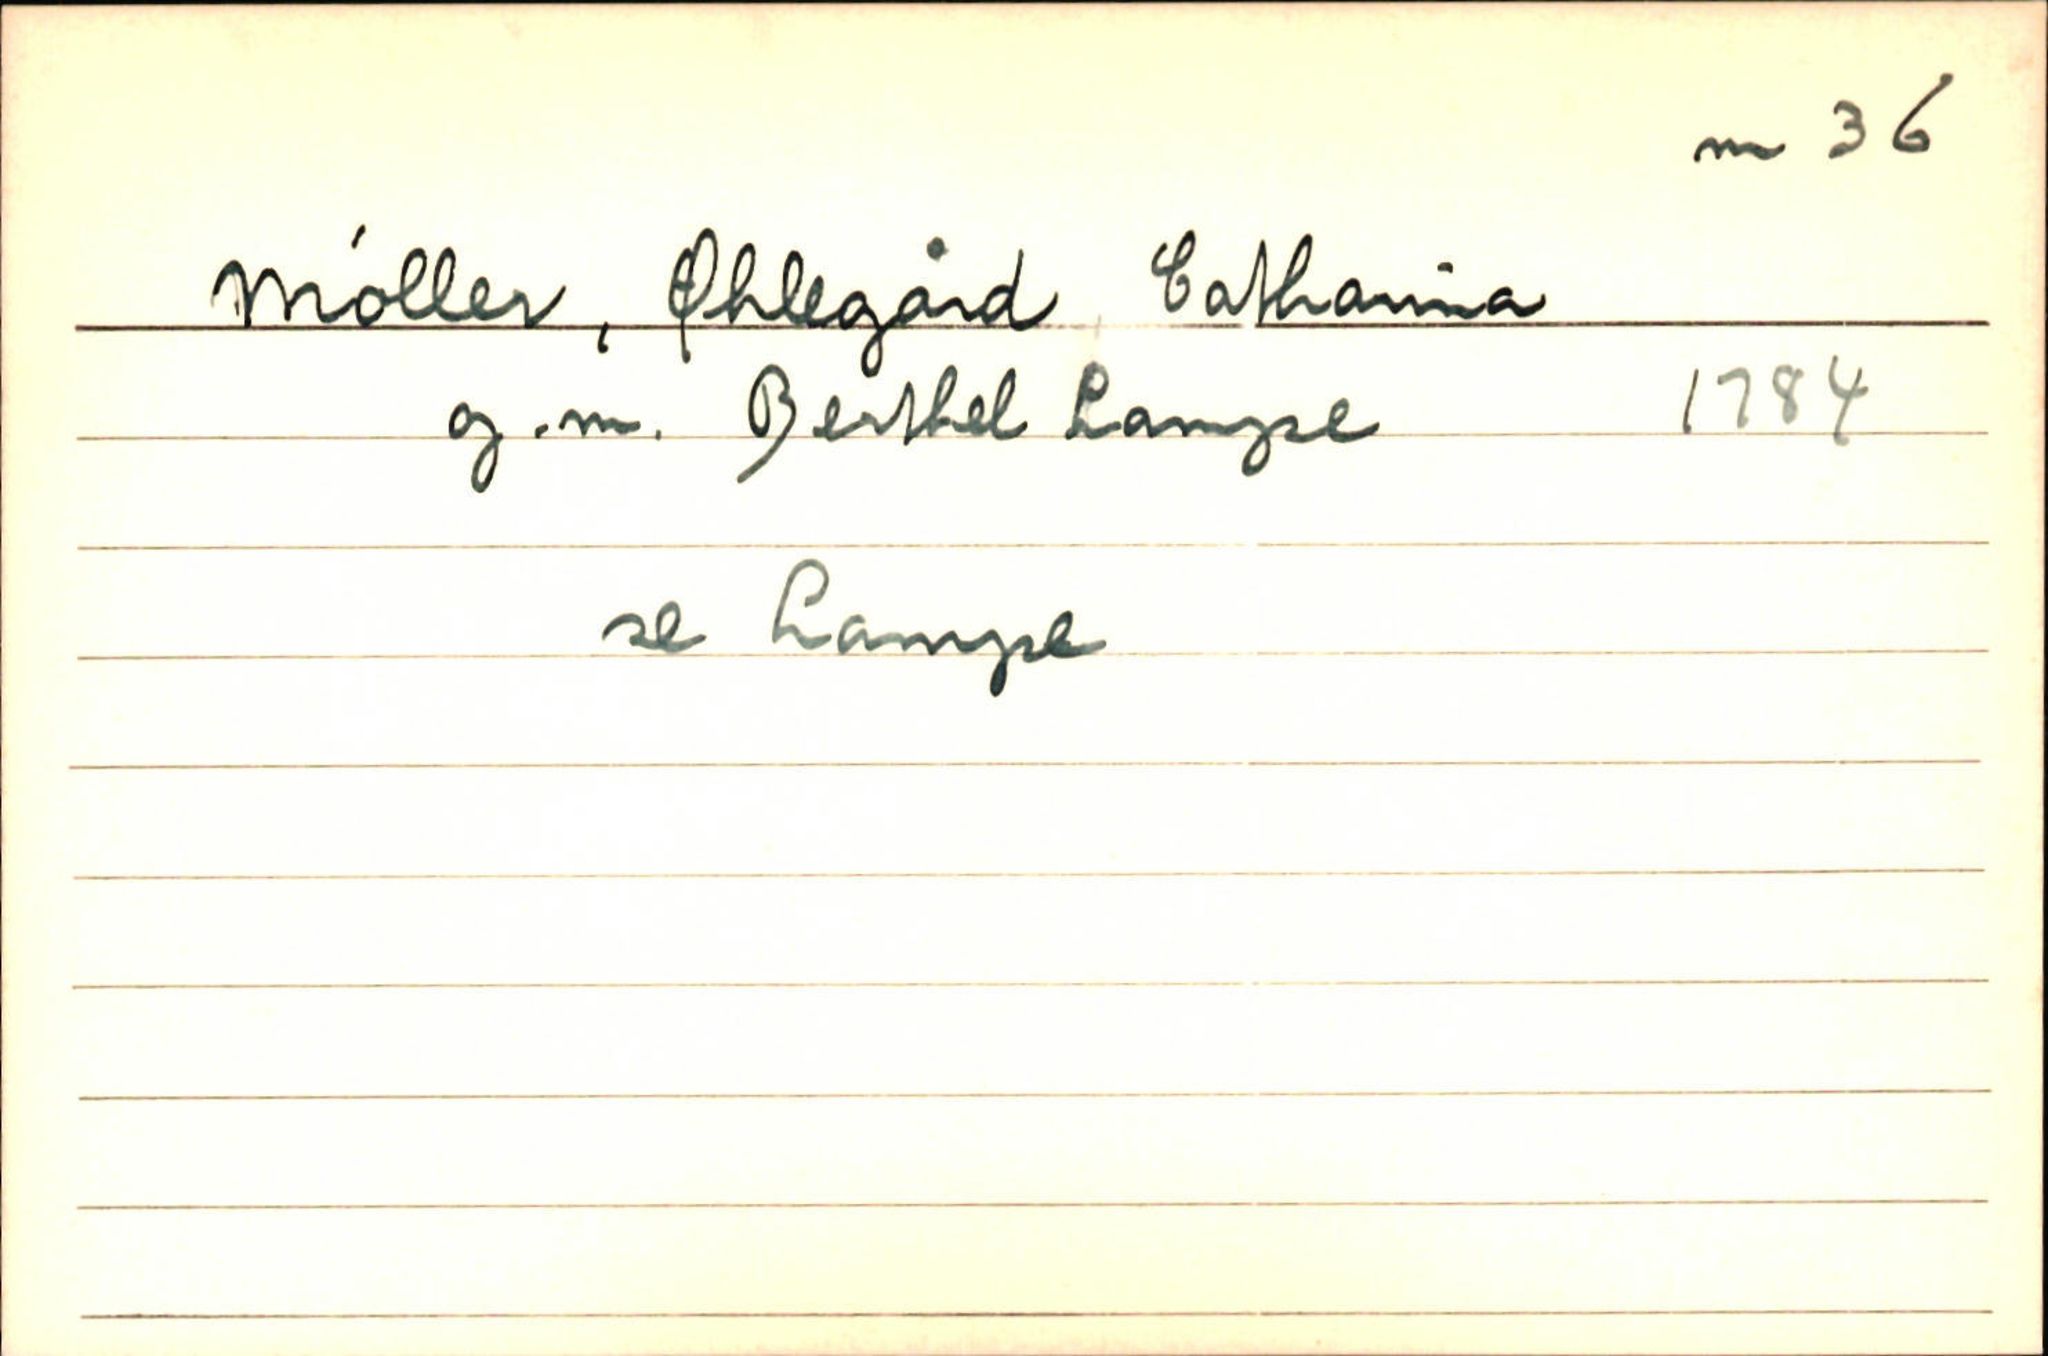 m 36
Møller, Øhlegård Catharina
g.m. Berthel Lampe 1784
se Lampe